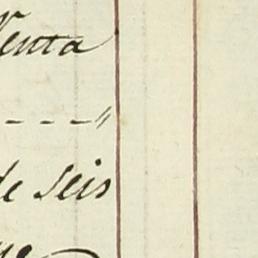 Venta
de seis